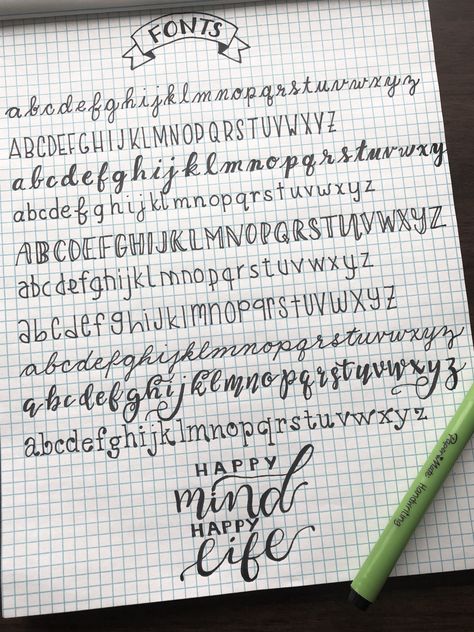 FONTS
abcdefghijklmnopqrstuvwxyz
ABCDEFGHIJKLMNOPQRSTUVWXYZ
abcdefghijklmnopqrstuvwxy
abcdefghijklmnopqrstuvwxyz
ABCDEFGHIJKLMNOPQRSTUVWXYZ
abcdefghijklmnopqrstuvwxyz
abcdefghijklmnopqrstuvwxyz
abcdefghijklmnopqrstuvwxyz
abcdefghijklmnopqrstuvwxyz
abcdefghijklmnopqrstuvwxyz
HAPPY
mind
HAPPY
life
Paper Mate Handwriting